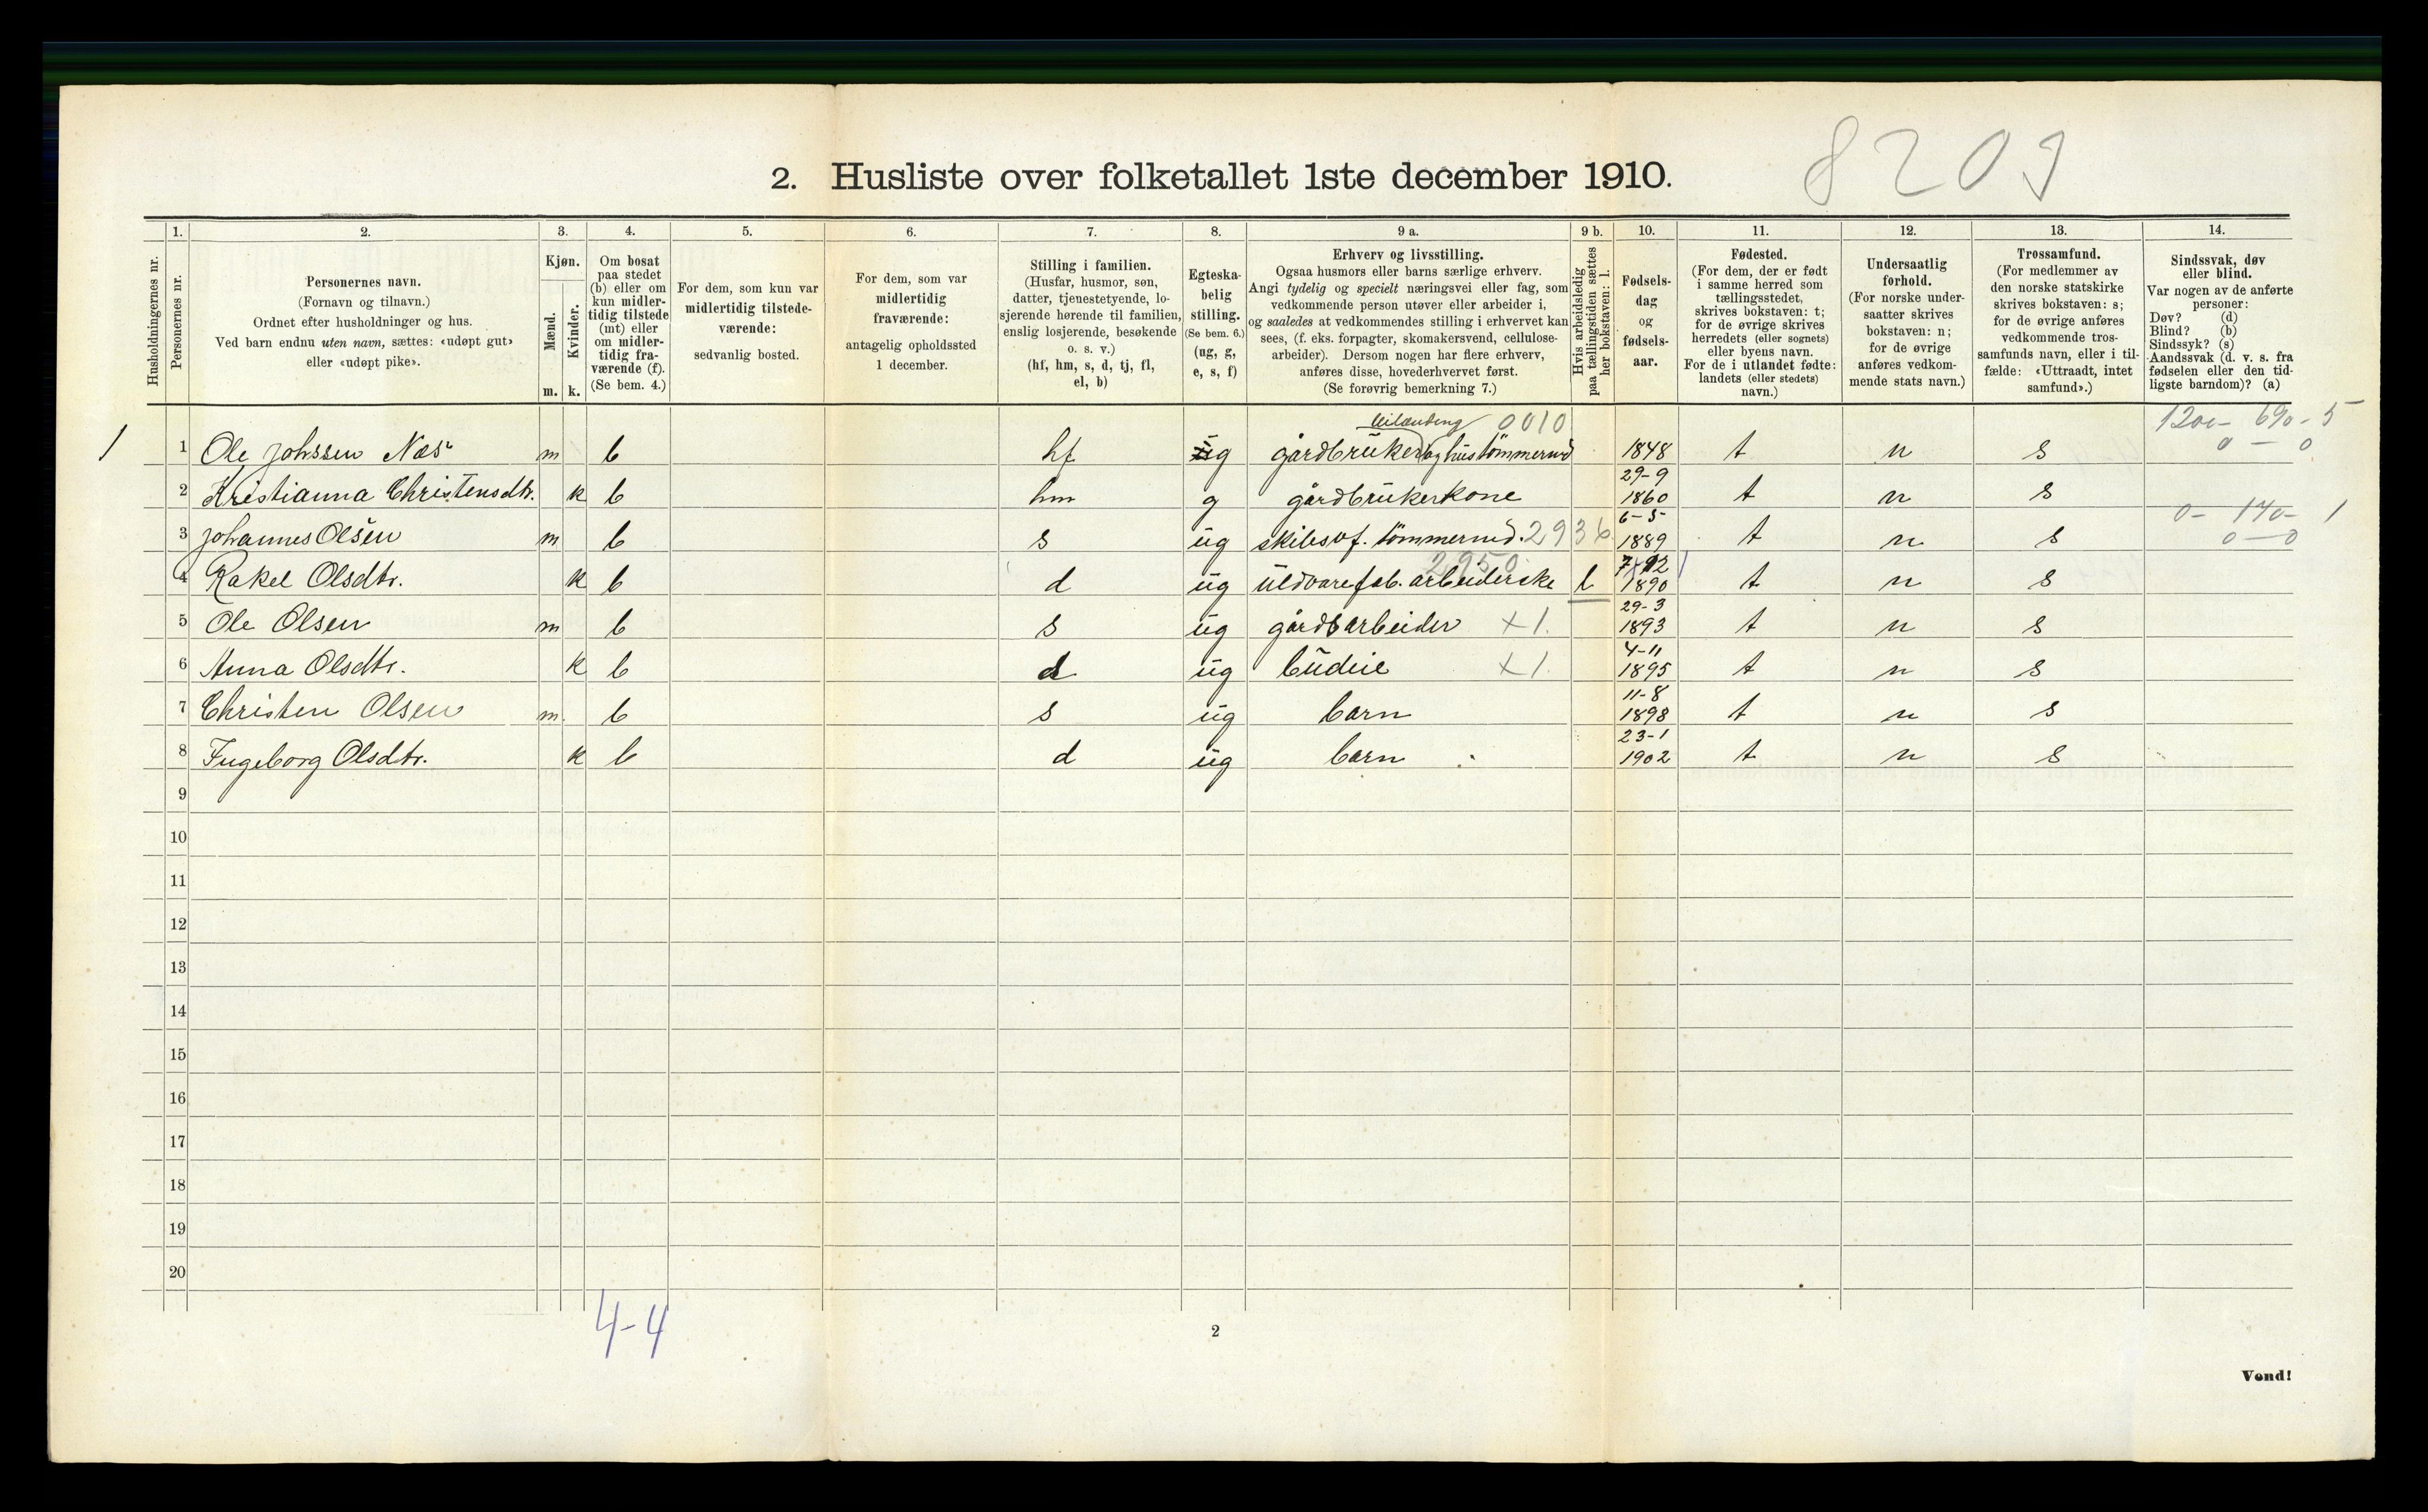 8209
2. Husliste over folketallet 1ste december 1910.
Husholdningernes nr.
1.
Personernes nr.
2.
Personernes navn.
(Fornavn og tilnavn.)
Ordnet efter husholdninger og hus.
Ved barn endnu uten navn, sættes: «udøpt gut»
eller «udøpt pike».
3.
Kjøn.
Mænd.
m.
Kvinder.
k.
4.
Om bosat
paa stedet
(b) eller om
kun midler-
tidig tilstede
(mt) eller
om midler-
tidig fra-
værende (f).
(Se bem. 4.)
5.
For dem, som kun var
midlertidig tilstede-
værende:
sedvanlig bosted.
6.
For dem, som var
midlertidig
fraværende:
antagelig opholdssted
1 december.
7.
Stilling i familien.
(Husfar, husmor, søn,
datter, tjenestetyende, lo-
sjerende hørende til familien,
enslig losjerende, besøkende
o. s. v.)
(hf, hm, s, d, tj, fl,
el, b)
8.
Egteska-
belig
stilling.
(Se bem. 6.)
(ug, g,
e, s, f)
9 a.
Erhverv og livsstilling.
Ogsaa husmors eller barns særlige erhverv.
Angi tydelig og specielt næringsvei eller fag, som
vedkommende person utøver eller arbeider i,
og saaledes at vedkommendes stilling i erhvervet kan
sees, (f. eks. forpagter, skomakersvend, cellulose-
arbeider). Dersom nogen har flere erhverv,
anføres disse, hovederhvervet først.
(Se forøvrig bemerkning 7.)
9 b.
Hvis arbeidsledig
paa tællingstiden sættes
her bokstaven: l.
10.
Fødsels-
dag
og
fødsels-
aar.
11.
Fødested.
(For dem, der er født
i samme herred som
tællingsstedet,
skrives bokstaven: t;
for de øvrige skrives
herredets (eller sognets)
eller byens navn.
For de i utlandet fødte:
landets (eller stedets)
navn.)
12.
Undersaatlig
forhold.
(For norske under-
saatter skrives
bokstaven: n;
for de øvrige
anføres vedkom-
mende stats navn.)
13.
Trossamfund.
(For medlemmer av
den norske statskirke
skrives bokstaven: s;
for de øvrige anføres
vedkommende tros-
samfunds navn, eller i til-
fælde: «Uttraadt, intet
samfund».)
14.
Sindssvak, døv
eller blind.
Var nogen av de anførte
personer:
Døv? (d)
Blind? (b)
Sindssyk? (s)
Aandssvak (d. v. s. fra
fødselen eller den tid-
ligste barndom)? (a)
0010
1200- 690-5
1 1 Ole Johssen Næs m b hf g gårdbruker og hustømmermd 1848 t n s 0-0
29-9
2 Kristianna Christensdtr. k b hm g gårdbrukerkone 1860 t n s
6-5 0- 140- 1
3 Johannes Olsen m b s ug skibsof. tømmermd. 2936 1889 t n s 0-0
2950 7/12
4 Rakel Olsdtr. k b d ug uldvarefab. arbeiderske l 1890 t n s
29-3
5 Ole Olsen m b s ug gårdsarbeider x1. 1893 t n s
4-11
6 Anna Olsdtr. k b d ug budeie x1. 1895 t n s
11-8
7 Christen Olsen m. b s ug barn 1898 t n s
23-1
8 Ingeborg Olsdtr. k b d ug barn 1902 t n s
9
10
11
12
13
14
15
16
17
18
19
20
4-4
2
Vend!